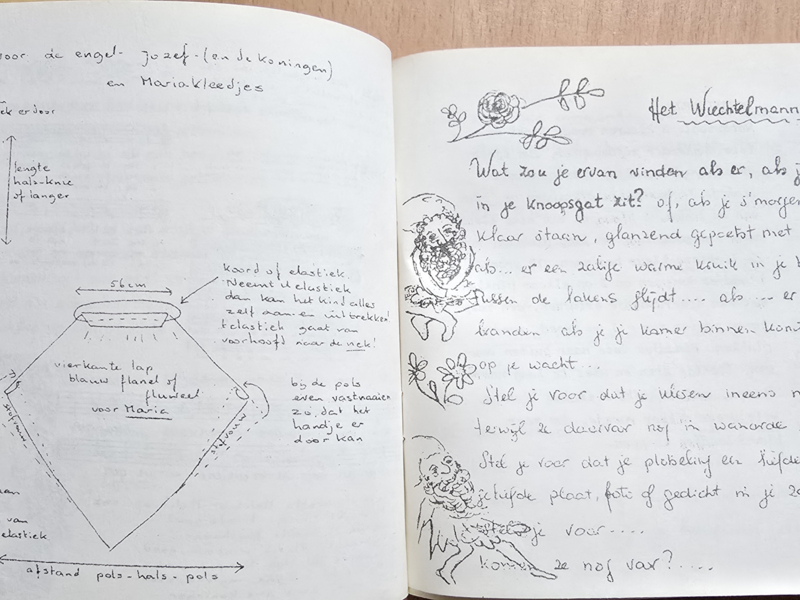 voor de engel- jozef- (en de koningen)
en Mariakleedjes
ek erdoor
lengte
hals-knie
of langer
56cm
koord of elastiek.
Neemt U elastiek
dan kan het kind alles
zelf aan en uittrekken!
't elastiek gaat van
voorhoofd naar de nek!
vierkante lap
blauw flanel of
fluweel
voor Maria
stofvouw
stofvouw
bij de pols
even vastnaaien
zo, dat het
handje er
door kan
aan
van
elastiek
afstand pols-hals-pols
Het Wiechtelmann
Wat zou je ervan vinden als er, als j
in je knoopsgat zit? of, als je s'morgen
klaar staan, glanzend gepoetst met
als... er een zalige warme kruik in je b
tussen de lakens glijdt.... als ... er
branden als je je kamer binnen komt
op je wacht...
Stel je voor dat je ineens
terwijl ze daarvar nog in wanorde
Stel je voor dat je plotseling een liefde
geliefde plaat, foto of gedicht in je
stel je voor....
komen ze nog var?....